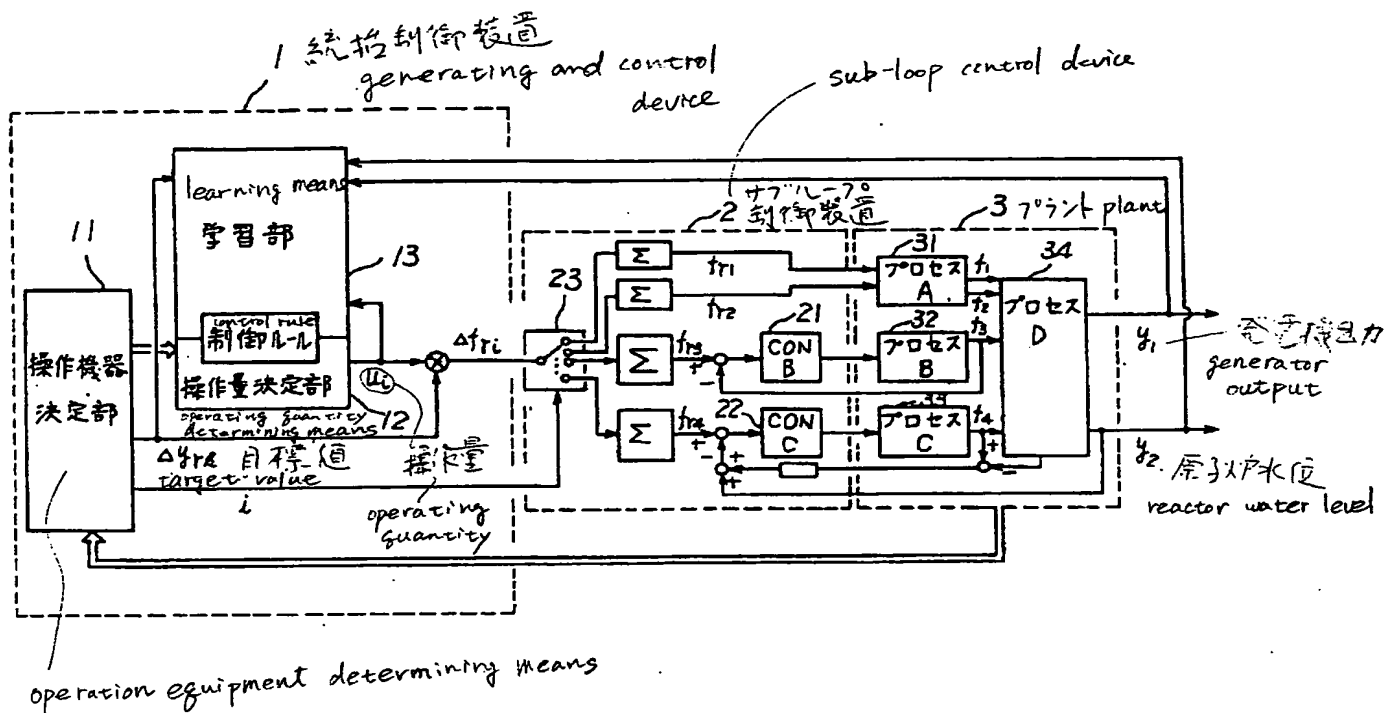 1 統括制御装置
generating and control
device
sub-loop control device
learning means
学習部
11
13
control rule
制御ルール
操作機器
決定部
操作量決定部
operating quantity
determining means
12
Δyra 目標値
target value
i
ui
操作量
operating
quantity
Δfri
23
2
サブループ
制御装置
Σ
fr1
Σ
fr2
Σ
fr3
+
-
21
CON
B
Σ
fr4
+
-
22
CON
C
+
+
3 プラント plant
31
プロセス
A
f1
f2
32
プロセス
B
f3
プロセス
C
f4
+
-
34
プロセス
D
y1
発電機出力
generator
output
y2
原子炉水位
reactor water level
operation equipment determining means